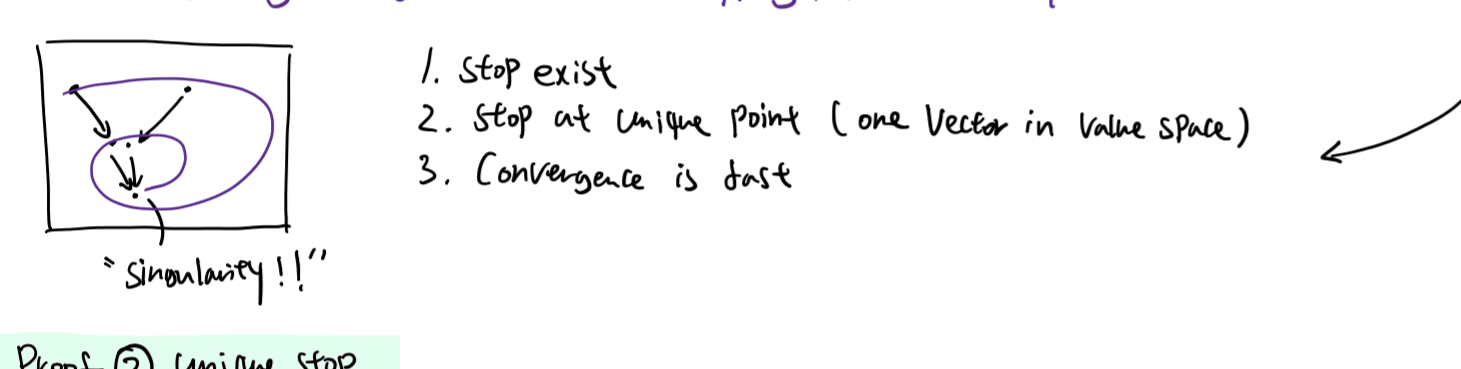 1. Stop exist
2. Stop at unique point (one Vector in value space)
3. Convergence is fast
"singularity!!"
Proof ② unique stop